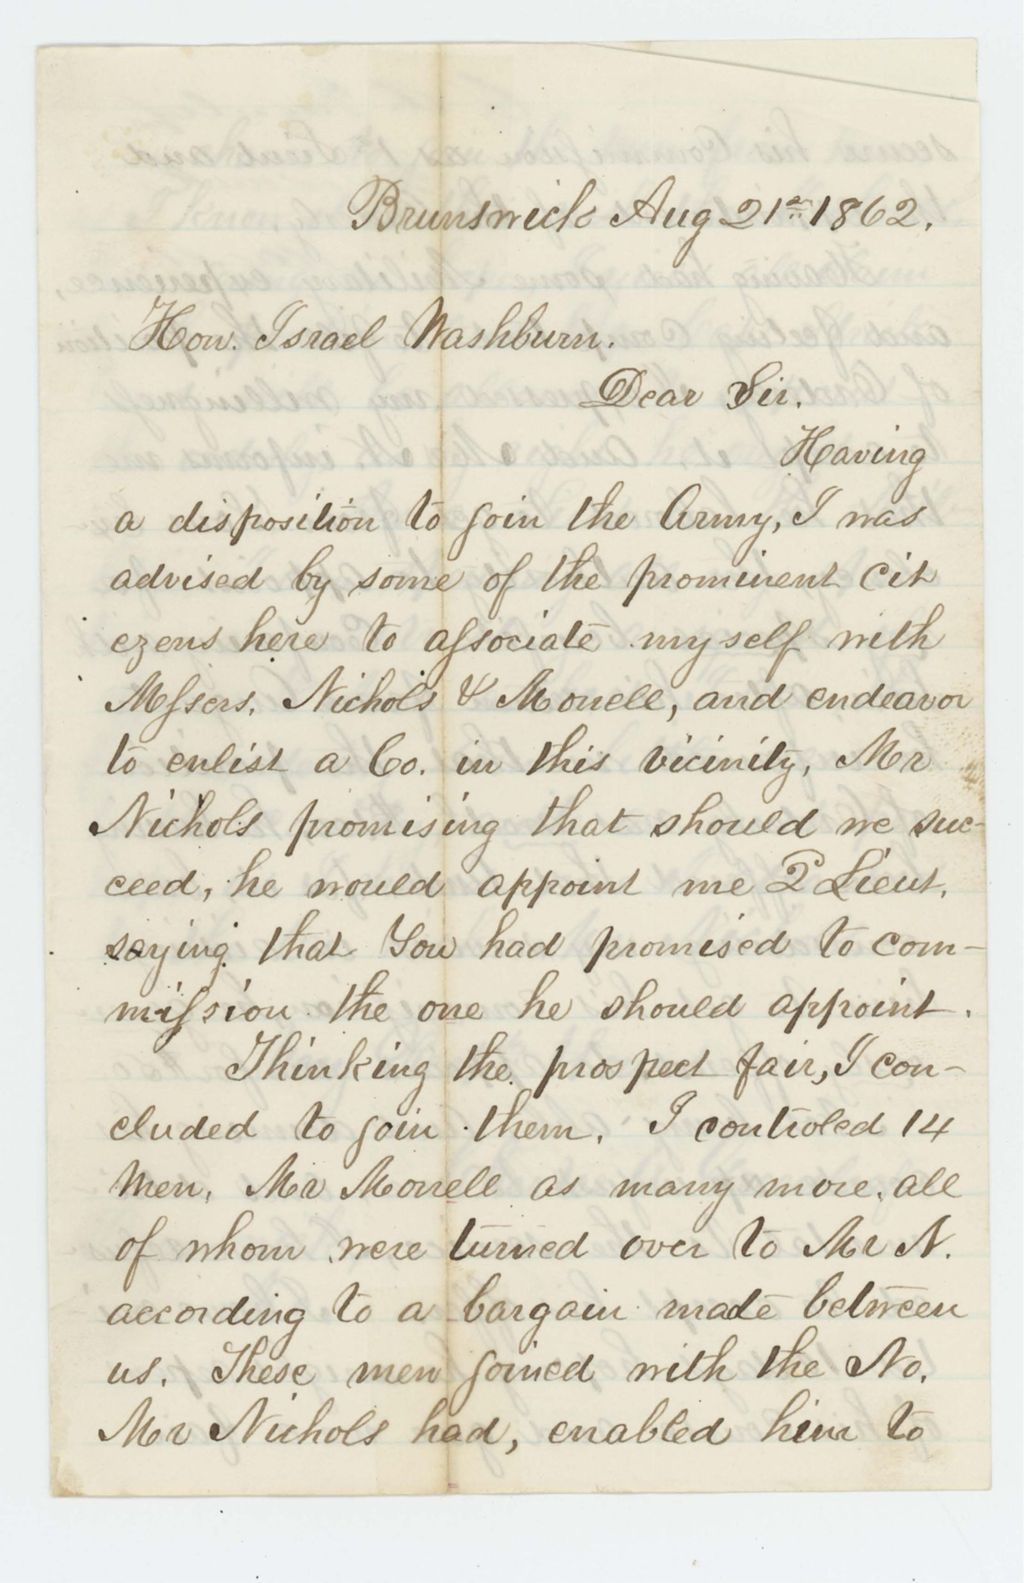 Brunswick Aug 21st 1862.
Hon. Israel Washburn.
Dear Sir.
Having
a disposition to join the Army, I was
advised by some of the prominent cit
ezens here to associate myself with
Messers. Nichols & Morrell, and endeavor
to enlist a Co. in this vicinity, Mr
Nichols promising that should we suc-
ceed, he would appoint me 2 Lieut.
saying that You had promised to com-
mission the one he should appoint.
Thinking the prospect fair, I con-
cluded to join them. I controled 14
Men, Mr Morrell as many more, all
of whom were turned over to Mr N.
according to a bargain made between
us. These men joined with the No.
Mr Nichols had, enabled him to